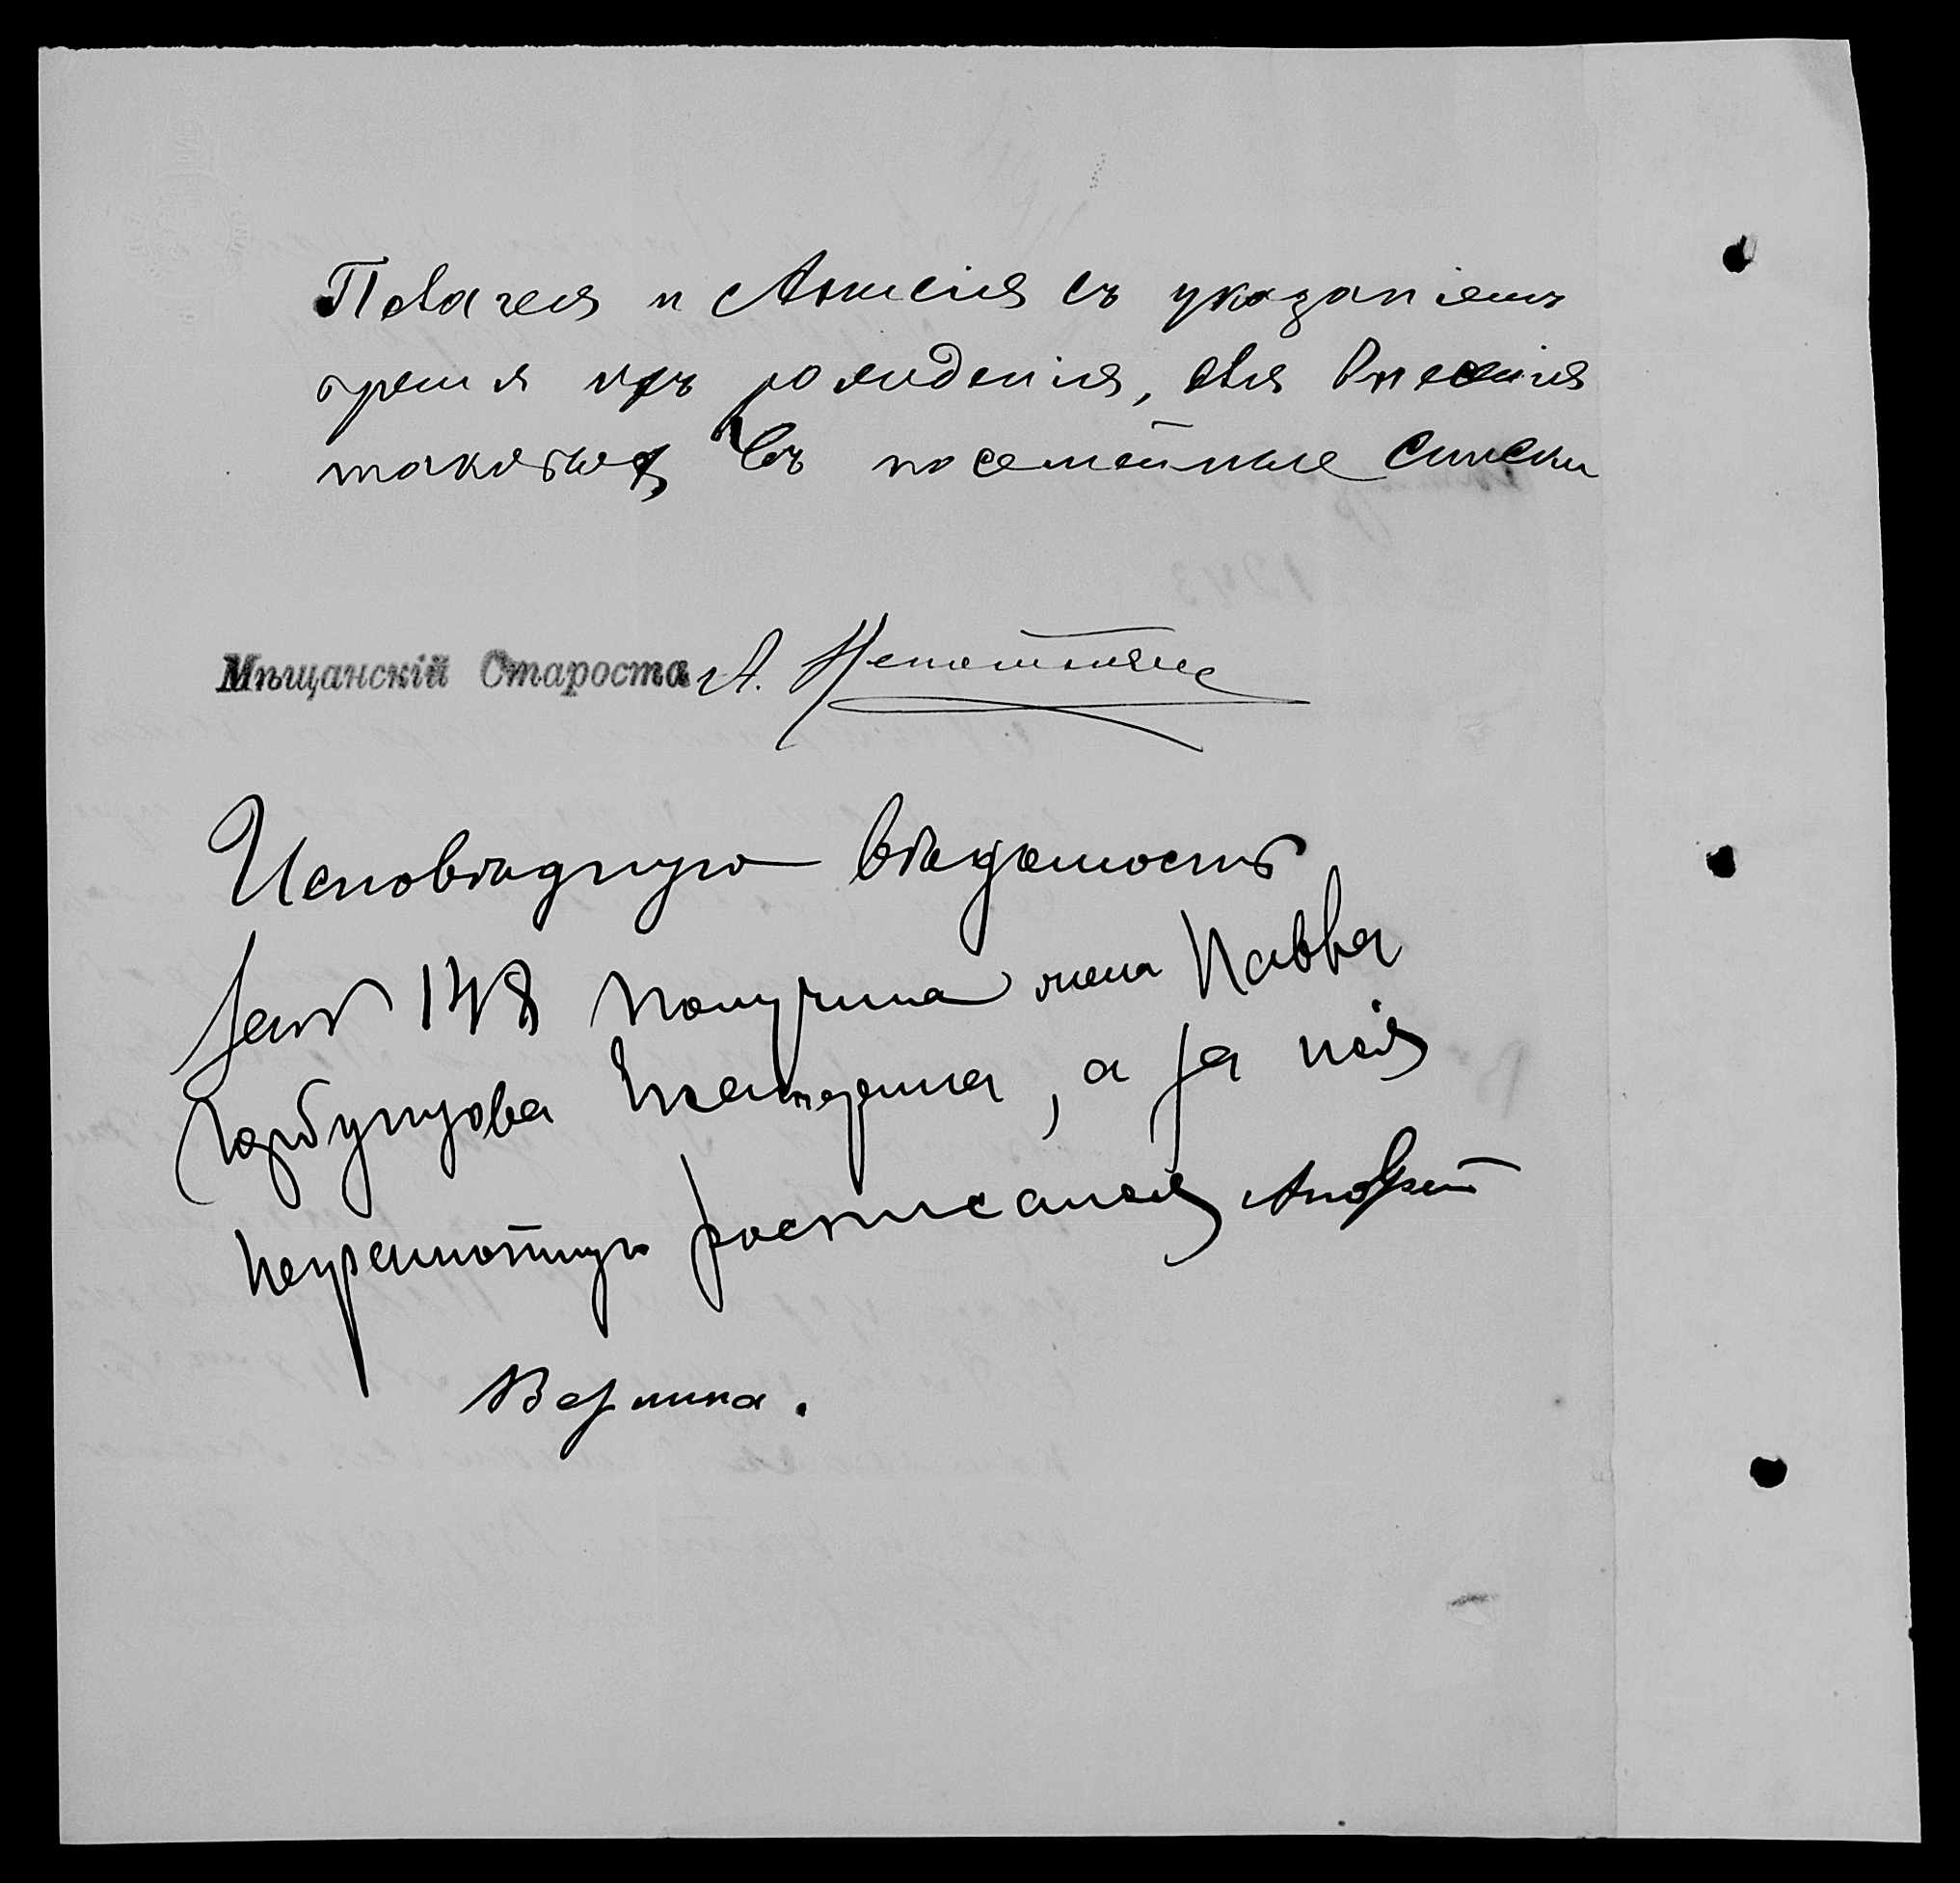 Пелагея и Анисія съ указаніемъ
время ихъ рожденія, для внесенія
таковыхъ въ посемейные списки
Мѣщанскій Староста А.
Исповѣдную вѣдомость
за № 148 получила жена Павла
Горбунцова Екатерина, а за нея
неграмотную росписался Андрей